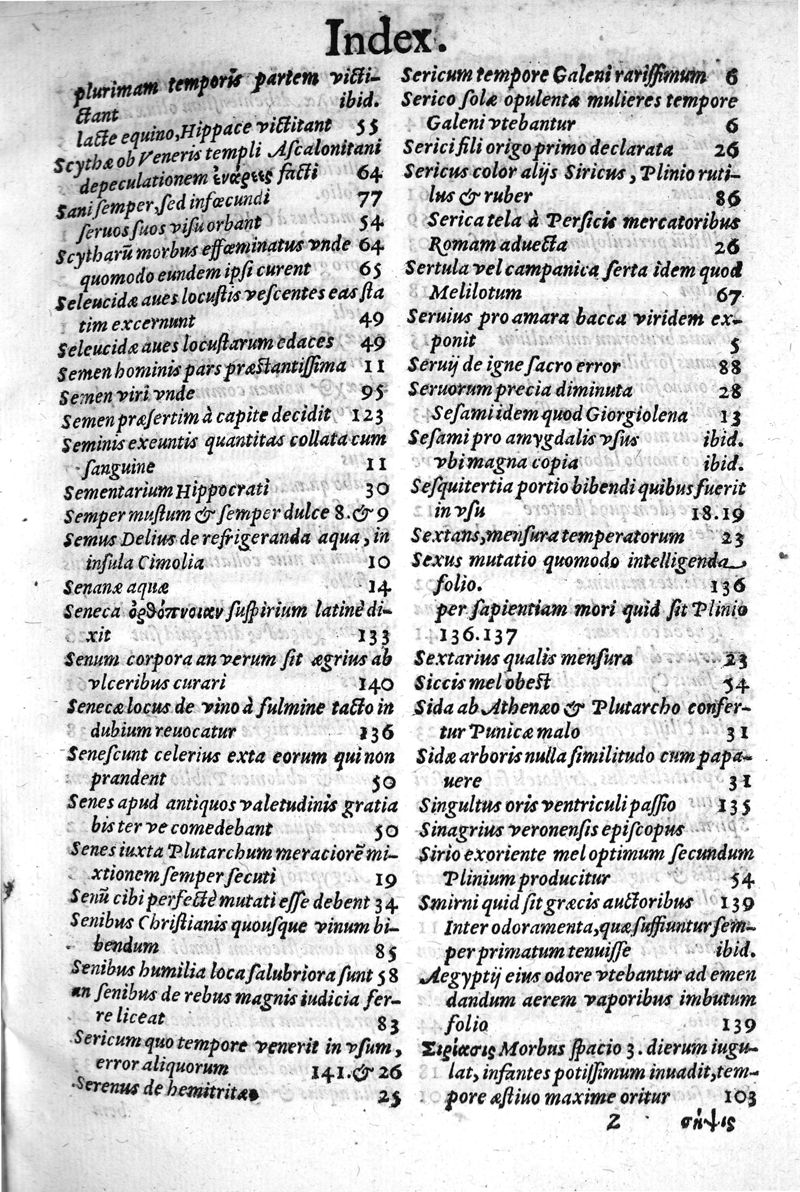 Index.
plurimam temporis partem victi-
ctant ibid.
lacte equino, Hippace victitant 55
Scythæ ob Veneris templi Ascalonitani
depeculationem ἐνάρεες facti 64
Sani semper, sed infœcundi 77
seruos suos visu orbant 54
Scytharũ morbus effœminatus vnde 64
quomodo eundem ipsi curent 65
Seleucidæ aues locustis vescentes eas sta
tim excernunt 49
Seleucidæ aues locustarum edaces 49
Semen hominis pars præstantissima 11
Semen viri vnde 95
Semen præsertim à capite decidit 123
Seminis exeuntis quantitas collata cum
sanguine 11
Sementarium Hippocrati 30
Semper mustum & semper dulce 8. & 9
Semus Delius de refrigeranda aqua, in
insula Cimolia 10
Senanæ aquæ 14
Seneca ὀρθόπνοιαν suspirium latinè di-
xit 133
Senum corpora an verum sit ægrius ab
vlceribus curari 140
Senecæ locus de vino à fulmine tacto in
dubium reuocatur 136
Senescunt celerius exta eorum qui non
prandent 50
Senes apud antiquos valetudinis gratia
bis ter ve comedebant 50
Senes iuxta Plutarchum meraciorẽ mi-
xtionem semper secuti 19
Senũ cibi perfectè mutati esse debent 34
Senibus Christianis quousque vinum bi-
bendum 85
Senibus humilia loca salubriora sunt 58
an senibus de rebus magnis iudicia fer-
re liceat 83
Sericum quo tempore venerit in vsum,
error aliquorum 141. & 26
Serenus de hemitritæo 25
Sericum tempore Galeni rarissimum 6
Serico solæ opulentæ mulieres tempore
Galeni vtebantur 6
Serici fili origo primo declarata 26
Sericus color alijs Siricus, Plinio ruti-
lus & ruber 86
Serica tela à Persicis mercatoribus
Romam aduecta 26
Sertula vel campanica serta idem quod
Melilotum 67
Seruius pro amara bacca viridem ex-
ponit 5
Seruij de igne sacro error 88
Seruorum precia diminuta 28
Sesami idem quod Giorgiolena 13
Sesami pro amygdalis vsus ibid.
vbi magna copia ibid.
Sesquitertia portio bibendi quibus fuerit
in vsu 18.19
Sextans, mensura temperatorum 23
Sexus mutatio quomodo intelligenda
folio. 136
per sapientiam mori quid sit Plinio
136.137
Sextarius qualis mensura 23
Siccis mel obest 54
Sida ab Athenæo & Plutarcho confer-
tur Punicæ malo 31
Sidæ arboris nulla similitudo cum papa-
uere 31
Singultus oris ventriculi passio 135
Sinagrius veronensis episcopus
Sirio exoriente mel optimum secundum
Plinium producitur 54
Smirni quid sit græcis auctoribus 139
Inter odoramenta, quæ suffiuntur sem-
per primatum tenuisse ibid.
Aegyptij eius odore vtebantur ad emen
dandum aerem vaporibus imbutum
folio 139
Σιρίασις Morbus spacio 3. dierum iugu-
lat, infantes potissimum inuadit, tem-
pore æstiuo maxime oritur 103
2 σήψις